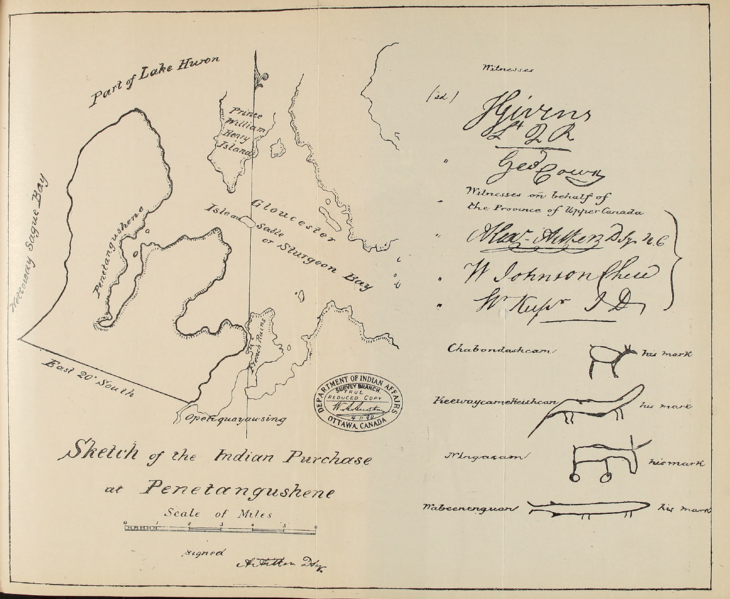 Part of Lake Huron
Prince
William
Henry
Island
Gloucester
or Sturgeon Bay
Penetangushene
East 20° South
Opetiquoyawsing
DEPARTMENT OF INDIAN AFFAIRS
SURVEY BRANCH
TRUE
REDUCED COPY
OTTAWA, CANADA
Sketch of the Indian Purchase
at Penetangushene
Scale of Miles
signed
Witnesses
(sd)
JGivens
Lt Q R
Geo Cown
Witnesses on behalf of
the Province of Upper Canada
Alex. Aitken Dy.
W Johnson Chew
Chabondasheam his mark
his mark
his mark
Wabeenenguan his mark